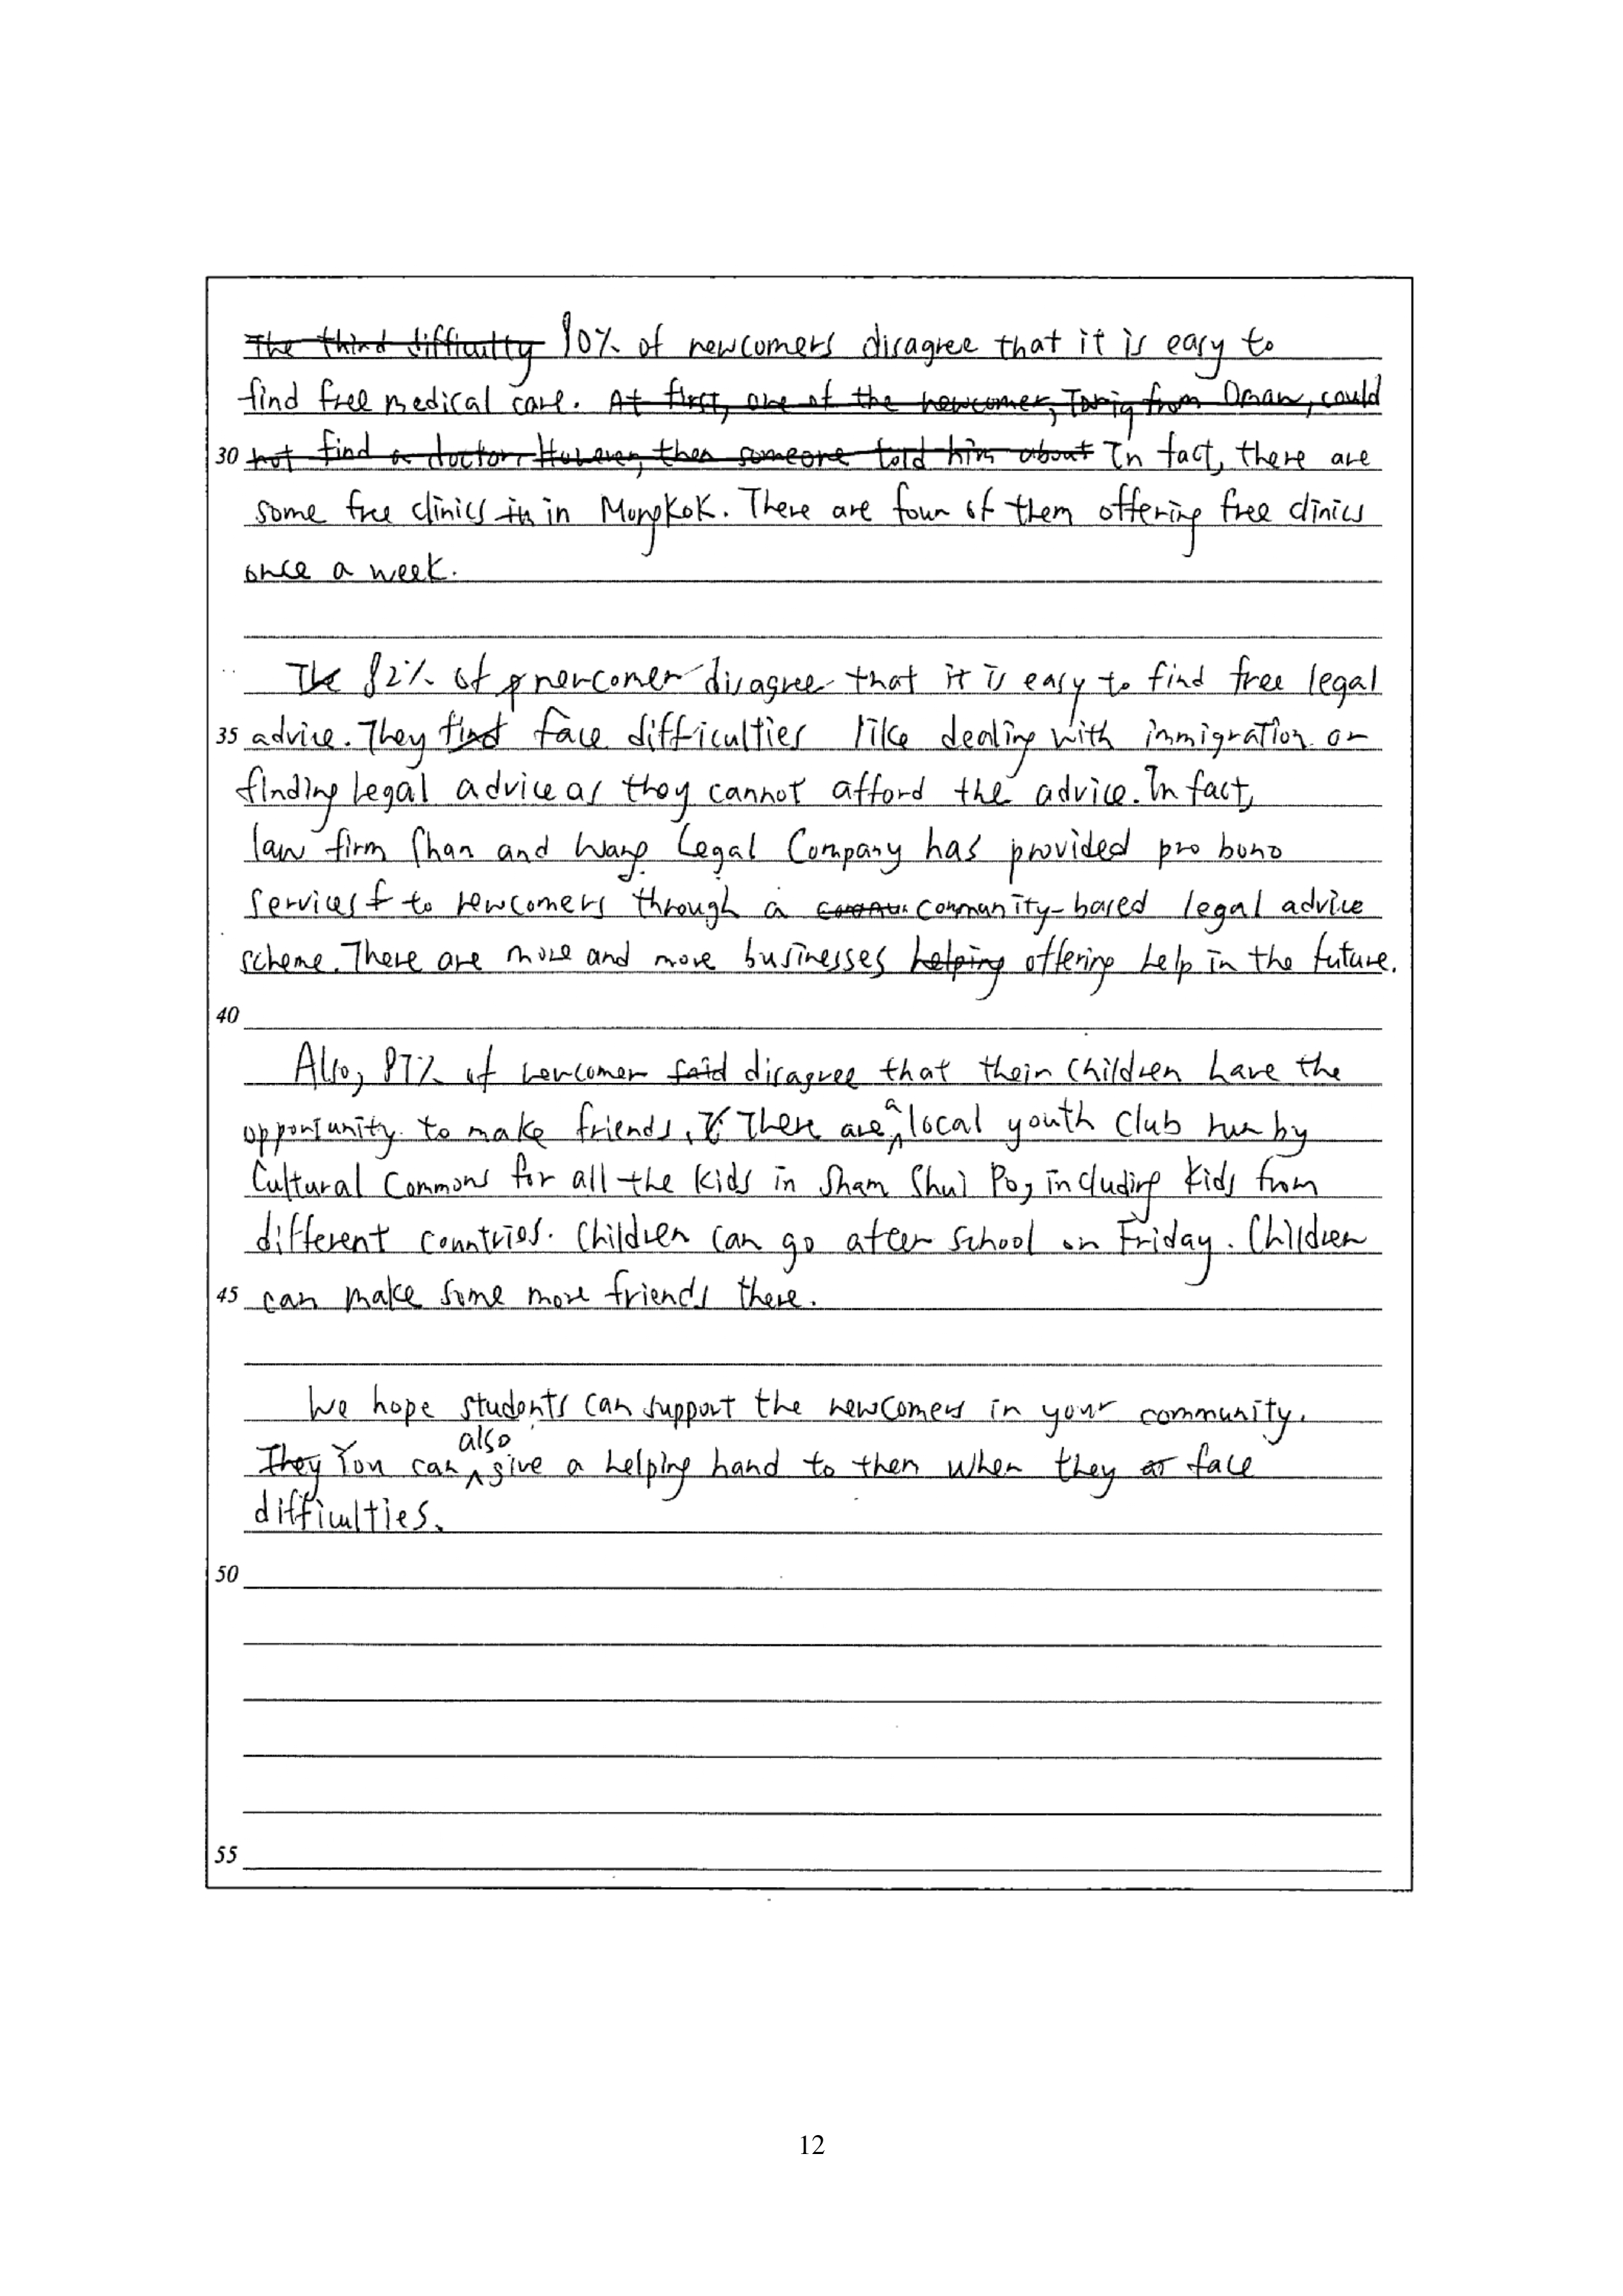 The third difficulty 90% of newcomers disagree that it is easy to
find free medical care. At first, one of the newcomer, Tariq from Oman, could
30 not find a doctor. However, then someone told him about In fact, there are
some free clinics in in Mongkok. There are four of them offering free clinics
once a week.
The 82% of newcomer disagree that it is easy to find free legal
35 advice. They find face difficulties like dealing with immigration or
finding legal advice as they cannot afford the advice. In fact,
law firm Shan and Wang Legal Company has provided pro bono
services to newcomers through a community-based legal advice
scheme. There are more and more businesses helping offering help in the future.
40
Also, 87% of newcomer said disagree that their children have the
opportunity to make friends. There are a local youth club run by
Cultural Commons for all the kids in Sham Shui Po, including kids from
different countries. Children can go after school on Friday. Children
45 can make some more friends there.
We hope students can support the newcomers in your community.
They You can also give a helping hand to them when they face
difficulties.
50
55
12